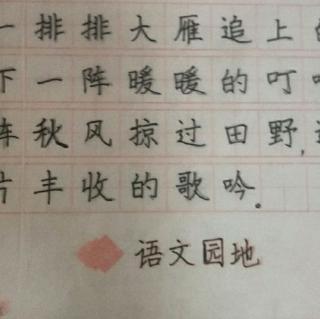 一排排大雁追上
下一阵暖暖的叮
阵秋风掠过田野,
片丰收的歌吟。
语文园地